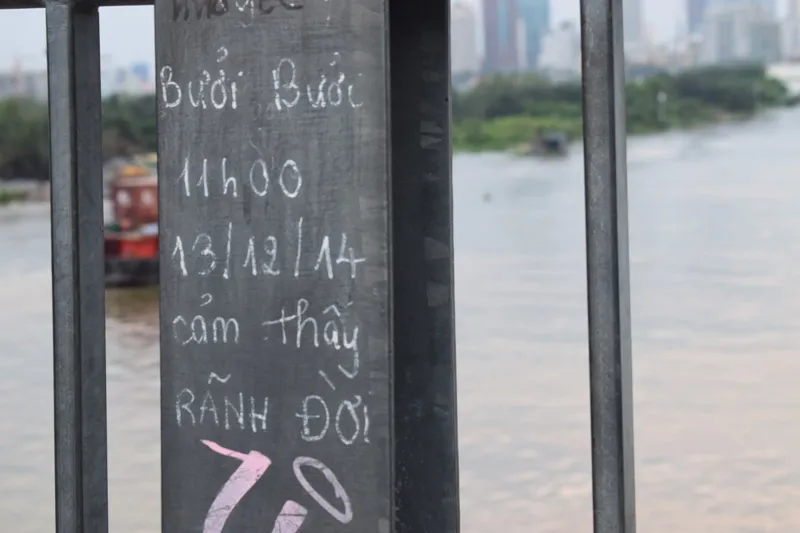 Bưởi Bưởi
11h00
13/12/14
cảm thấy
RÃNH ĐỜI